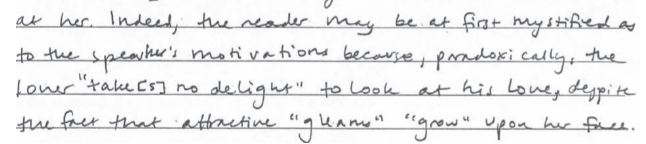 at her. Indeed, the reader may be at first mystified as
to the speaker's motivations because, paradoxically, the
lover "take[s] no delight" to look at his love, despite
the fact that attractive "gleams" "grow" upon her face.